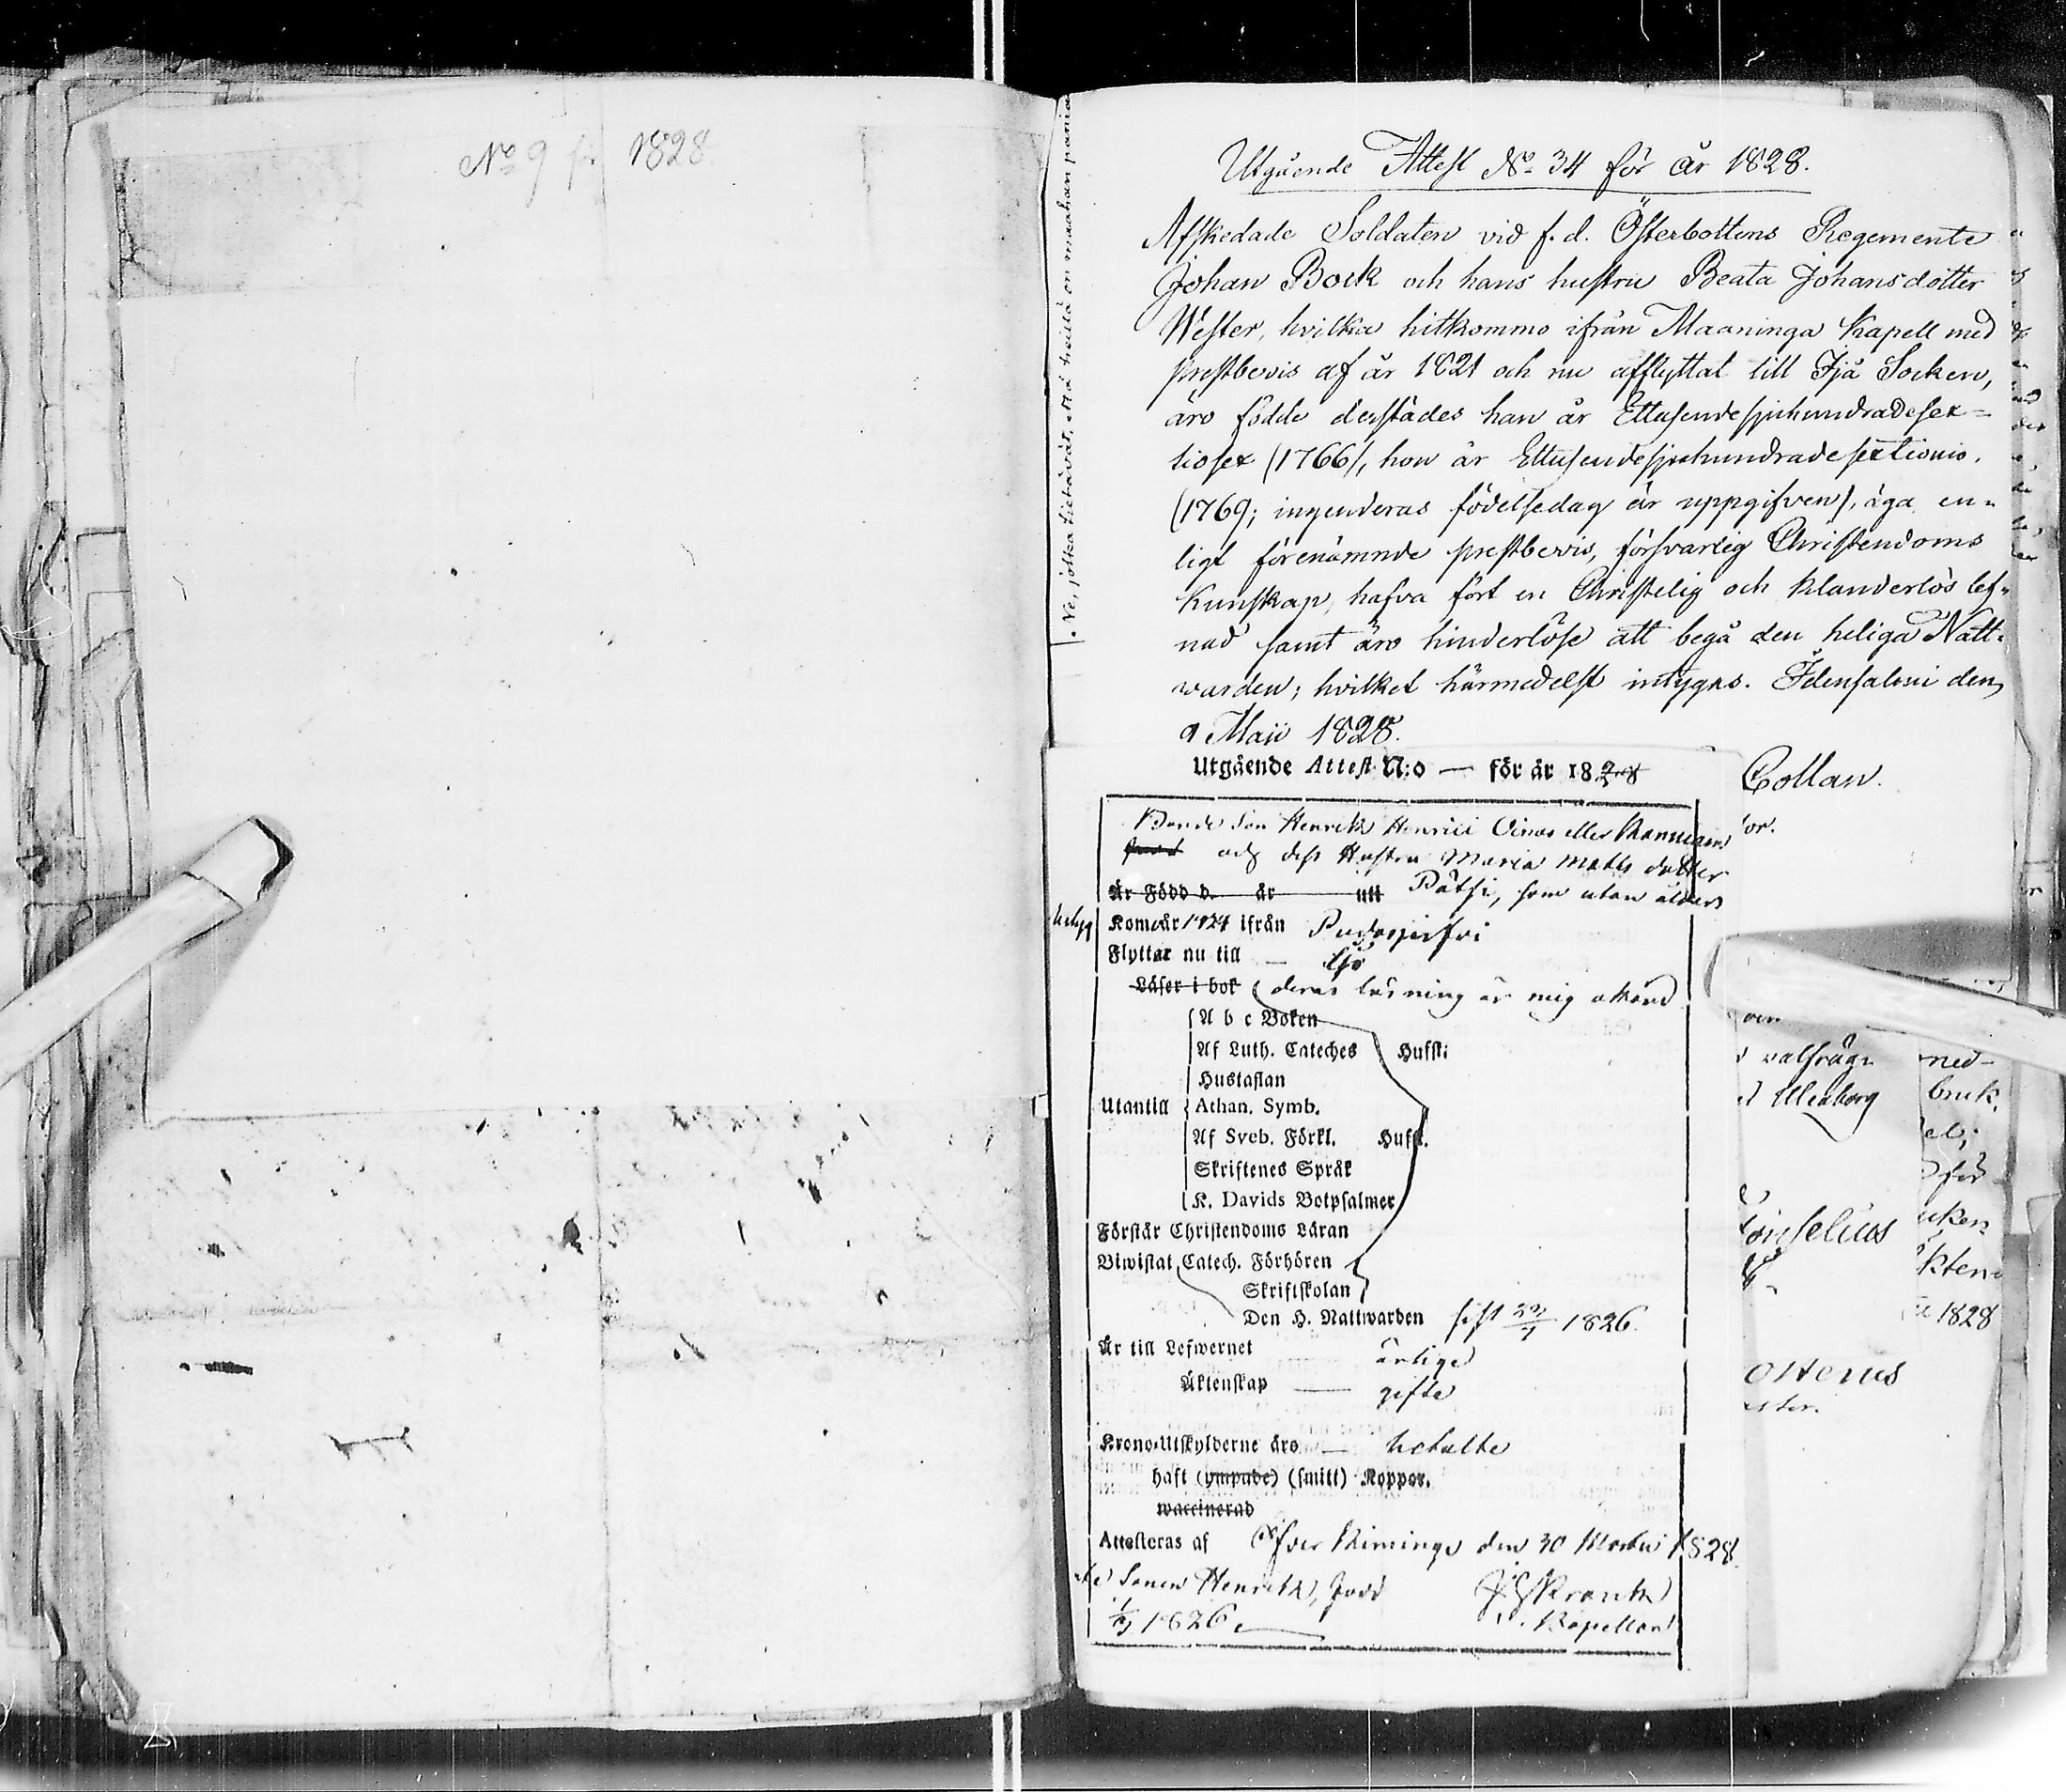 No 9 1828
Utgående Attest No 34 för år 1828.
Afskedade Soldaten vid f.d. Österbottens Regemente
Johan Bock och hans hustru Beata Johansdotter
Wester, hvilka hitkommo ifrån Maaninga Kapell med
prestbevis af år 1821 och nu afflyttat till Ijå Socken,
äro födde derstädes han år Ettusendesjuhundradesex=
tiosex (1766), hon år Ettusendesjuhundradesextionio.
(1769; ingenderas födelsedag är uppgifven), äga en=
ligt förenämnde prestbevis, försvarlig Christendoms
Kunskap, hafva fört en Christelig och klanderlös lef=
nad samt äro hinderlöse att begå den heliga Natt=
varden; hvilket härmedelst intygas. Idensalmi den
9 Maii 1828.
Collan.
Utgående Attest N:o — för år 1828
Bonde Son Henrik Henrici
och dess Hustru Maria Matts dotter
Är Född d. år uti Pätsi, som utan ålders
Kom år 1824 ifrån Pudasjerfvi
Flyttar nu till — Ijo
Läser i bok deras läsning är mig okänd
A b c Boken
Af Luth. Cateches Hufst:
Hustaflan
Utantill Athan. Symb.
Af Sveb. Förkl. Hufst.
Skriftenes Språk
K. Davids Botpsalmer
Förstår Christendoms Läran
Biwistat Catech. Förhören
Skriftskolan
Den H. Nattwarden sist 1826.
Är till Lefwernet ärlige
Äktenskap — gifte
Krono-Utskylderne äro — betalte
haft (ympade) (smitt) Koppor.
waccinerad
Attesteras af Öfver Kiminge den 30 Martii 1828.
Sonen Henrik, född
1826.
Kapellan
ned-
bruk.
för
1828